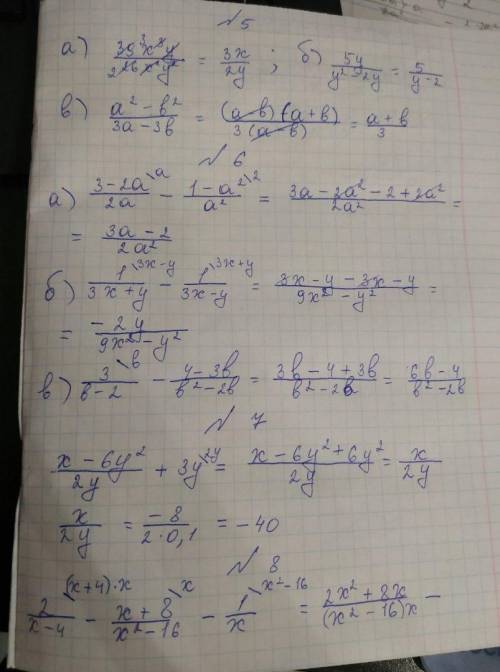 №5
а) 39x³y / 26x²y² = 3x / 2y ; б) 5y / y² - 2y = 5 / y - 2
в) a² - b² / 3a - 3b = (a - b)(a + b) / 3(a - b) = a + b / 3
№6
а) 3 - 2a / 2a \a - 1 - a² / a² \2 = 3a - 2a² - 2 + 2a² / 2a² =
= 3a - 2 / 2a²
б) 1 / 3x + y \3x-y - 1 / 3x - y \3x+y = 3x - y - 3x - y / 9x² - y² =
= -2y / 9x² - y²
в) 3 / b - 2 \b - 4 - 3b / b² - 2b = 3b - 4 + 3b / b² - 2b = 6b - 4 / b² - 2b
№7
x - 6y² / 2y + 3y \2y = x - 6y² + 6y² / 2y = x / 2y
x / 2y = -8 / 2·0,1 = -40
№8
2 / x - 4 \(x+4)·x - x + 8 / x² - 16 \x - 1 / x \x²-16 = 2x² + 8x / (x² - 16)x -